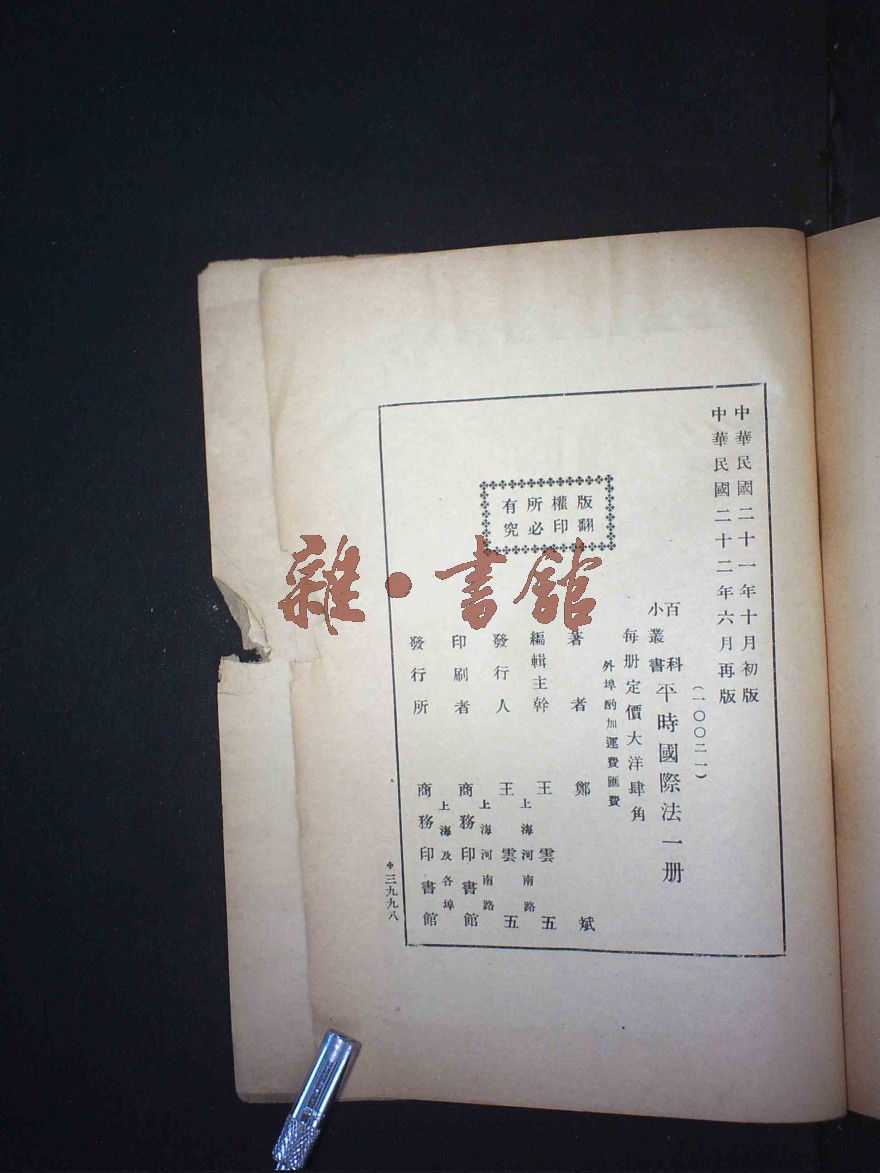 中華民國二十一年十月初版
中華民國二十二年六月再版
(一〇〇二一)
百科
小叢書
平時國際法一册
每册定價大洋肆角
外埠酌加運費匯費
版權所有
翻印必究
著者 鄭斌
編輯主幹 王雲五
上海河南路
發行人 王雲五
上海河南路
印刷者 商務印書館
上海及各埠
發行所 商務印書館
三九九八
雜·書館